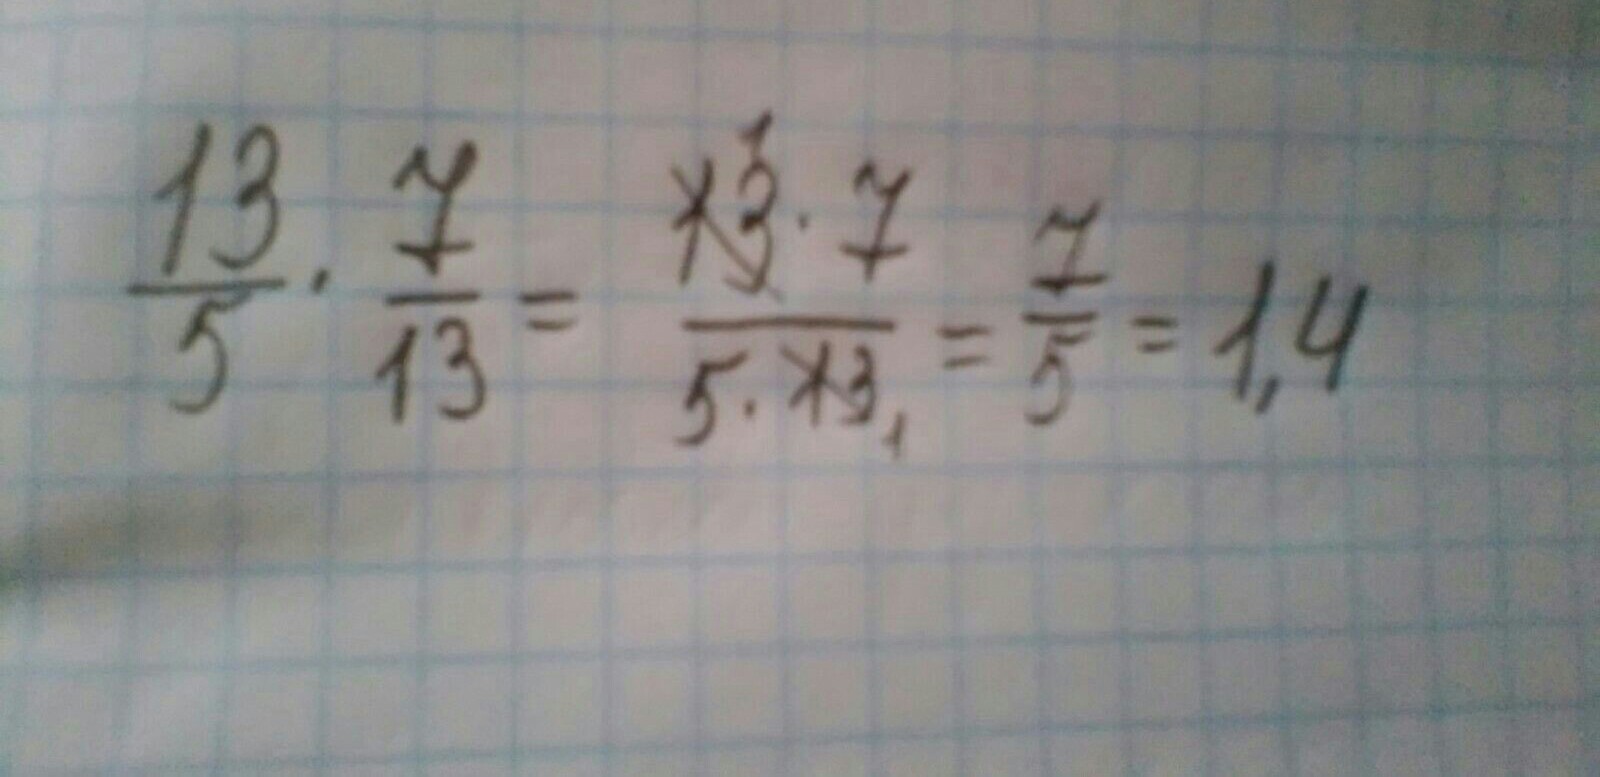 13/5 · 7/13 = 13¹ · 7 / 5 · 13₁ = 7/5 = 1,4